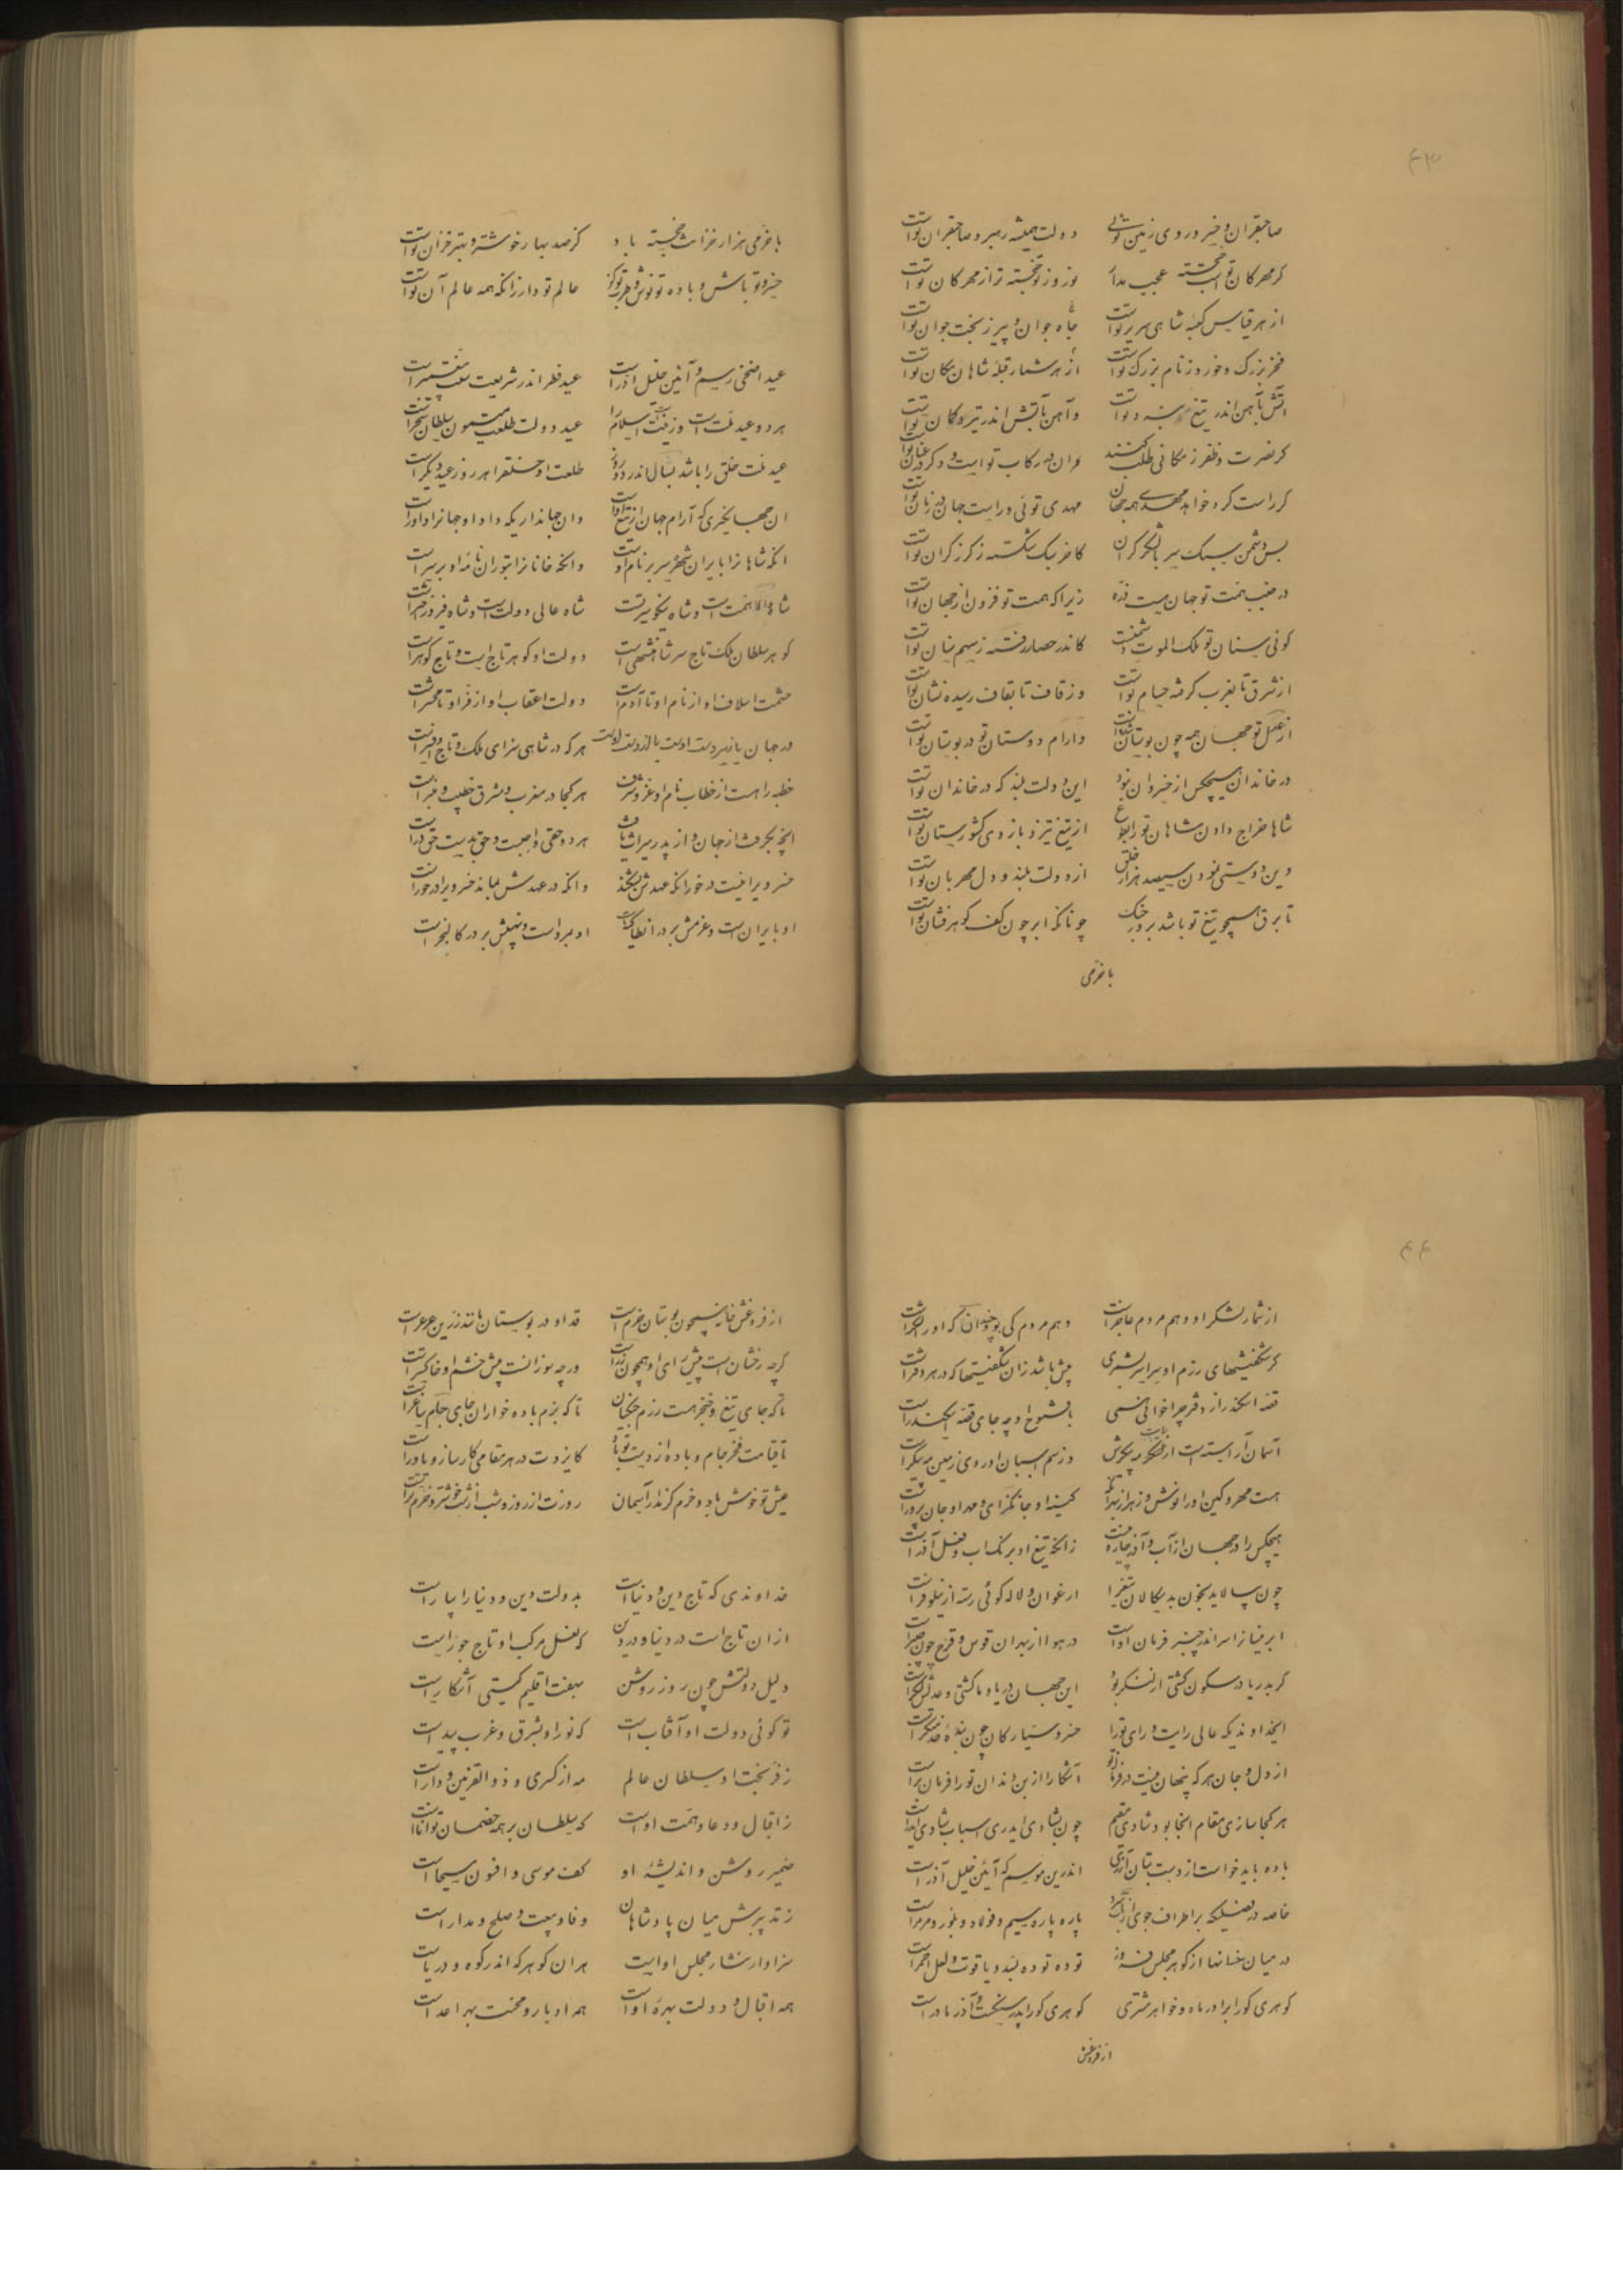 ۴۳
صاحبقران و خسرو روی زمین توئی دولت همیشه رهبر و صاحبقران تو است
گر مهرکان تو است خجسته عجیب مدار نوروز تو خجسته تر از مهرکان تو است
از هر قیاس کعبه شاهی سریر تو است جاه جوان و پیر ز بخت جوان تو است
فخر بزرگ و خورد ز نام بزرگ تو است از هر شمار قبله شاهان مکان تو است
آتش بآهن اندر تیغ تو است و آهن بآتش اندر تیر و کمان تو است
گر نصرت و ظفر ز مکانی طلب کنند در رکاب تو است و در عنان تو است
گر راست کرد خواهد مهدی همه جهان مهدی توئی و راست جهان در زمان تو است
بس دشمن سبک سر با لشکر گران کاخر سبک شکسته ز گرز گران تو است
در جنب همت تو جهان نیست ذره زیرا که همت تو فزون از جهان تو است
گوئی سنان تو ملک الموت دشمنست کاندر حصار رفته ز بیم سنان تو است
از شرق تا بغرب گرفته حسام تو است وز قاف تا بقاف رسیده نشان تو است
از عدل تو جهان همه چون بوستان شده است وارام دوستان تو در بوستان تو است
در خاندان هیچکس از خسروان نبود این دولت بلند که در خاندان تو است
شاها خراج دادن شاهان تو را بطوع از تیغ تیز و بازوی کشورستان تو است
وین دوستی نمودن سیصد هزار خلق از دولت بلند و دل مهربان تو است
تا برق همچو تیغ تو باشد بروز جنگ چونانکه ابر چون کف گوهرفشان تو است
با خرمی
با خرمی هزار خزانت خجسته باد کز صد بهار خوشتر و بهتر خزان تو است
خسرو تو باش و باده تو نوش و طرب تو کن عالم تو دار زانکه همه عالم آن تو است
عید اضحی رسم و آئین خلیل آذر است عید فطر اندر شریعت سنت پیغمبر است
هر دو عید ملت است و زینت اسلام را عید دولت طلعت میمون سلطان سنجر است
عید ملت خلق را باشد بسال اندر دو روز طلعت او خلق را هر روز عید دیگر است
ان جهانگیری که آرام جهان از تیغ اوست وان جهانداریکه داد او جهانرا داور است
انکه شاهانرا بایران شهر سر بر نام اوست وانکه خانانرا بتوران نامه او بر سر است
شاه والا همت است و شاه نیکو سیرتست شاه عالی دولت است و شاه فرخ اختر است
گوهر سلطان ملک تاج سر شاهنشهی است دولت او گوهر تاج است و تاج گوهر است
حشمت اسلاف او از نام او تا آدم است دولت اعقاب او از فر او تا محشر است
در جهان یا زیر دست اوست یا از دست اوست هر که در شاهی سزای ملک و تاج و افسر است
خطبه را هست از خطاب نام او عز و شرف هر کجا در مغرب و مشرق خطیب و منبر است
انچه بگرفت از جهان و از پدر میراث یافت هر دو حق واجبست و حق بدست حق ور است
خسرویرا نیست در خور انکه عهدش بشکند وانکه در عهدش بماند خسرویرا در خور است
او بایران است و عزمش بر در انطاکیه است او بمرو است و نهیبش بر در کالنجر است
۴۴
از شمار لشکر او وهم مردم عاجز است وهم مردم کی بود چندان که او را لشکر است
گر شگفتیهای رزم او سراسر بشمری بیش باشد زان شگفتیها که در هر دفتر است
قصه اسکندر از دفتر چرا خوانی همی با فتوح او چه جای قصه اسکندر است
آسمان آراسته است از پیکرش وز سم اسبان او روی زمین مه پیکر است
هست مهر و کین او را نوش و زهر از بهر آنکه کینه او جانگزای و مهر او جان پرور است
هیچکس را در جهان از آب و آذر چاره نیست زانکه تیغ او برنگ آب و فعل آذر است
چون بیالاید بخون بدسگالان تیغ را ارغوان و لاله گوئی رسته از نیلوفر است
ابر نیسانرا سر اندر چنبر فرمان اوست در هوا از بهر ان قوس و قزح چون چنبر است
گر بدریا در سکون کشتی از لنگر بود این جهان دریا و ما کشتی و عدلش لنگر است
ایخداوندیکه عالی رایت و رای تو را خسرو سیارگان چون بنده خدمتگر است
از دل و جان هر که پنهان نیست در فرمان تو آشکارا از بن دندان تو را فرمانبر است
هر کجا سازی مقام انجا بود شادی مقیم چون بشادی ایدری اسباب شادی ایدر است
باده باید خواست از دست بتان آزری اندرین موسم که آئین خلیل آذر است
خاصه در فصلیکه بر اطراف جوی از آب سرد پاره پاره سیم و فولاد و بلور و مرمر است
در میان خانها از گوهر مجلس فروز توده توده بسد و یاقوت و لعل احمر است
گوهری کورا برادر ماه و خواهر مشتری گوهری کورا پدر سنگست و آذر مادر است
از فروغش
از فروغش خانه همچون بوستان خرم است قد او در بوستان مانند زرین عرعر است
گرچه رخشان است پیش رای او همچون ذره است ورچه سوزانست پیش خشم او خاکستر است
تا که جای تیغ و خنجر هست رزم جنگیان تا که بزم باده خواران جای جام و ساغر است
تا قیامت فخر جام و باده از دست تو باد کایزدت در هر مقامی کارساز و یاور است
عیش تو خوش باد و خرم کز مدار آسمان روزت از روز و شبت از شب خوشتر و خرمتر است
خداوندی که تاج دین و دنیاست بدولت دین و دنیا را بیاراست
ازان تاج است در دنیا و در دین که نعل مرکب او تاج جوزاست
دلیل دولتش چون روز روشن بهفت اقلیم گیتی آشکار است
تو گوئی دولت او آفتاب است که نور او بشرق و غرب پیداست
ز فر بخت او سلطان عالم مه از کسری و ذوالقرنین و دارا است
ز اقبال و دعا و همت اوست که سلطان بر همه خصمان توانا است
ضمیر روشن و اندیشه او کف موسی و افسون مسیحا است
ز تدبیرش میان پادشاهان وفا و بیعت و صلح و مدار است
سزاوار نثار مجلس اوست هران گوهر که اندر کوه و دریاست
همه اقبال و دولت بهره اوست همه ادبار و محنت بهر اعداست